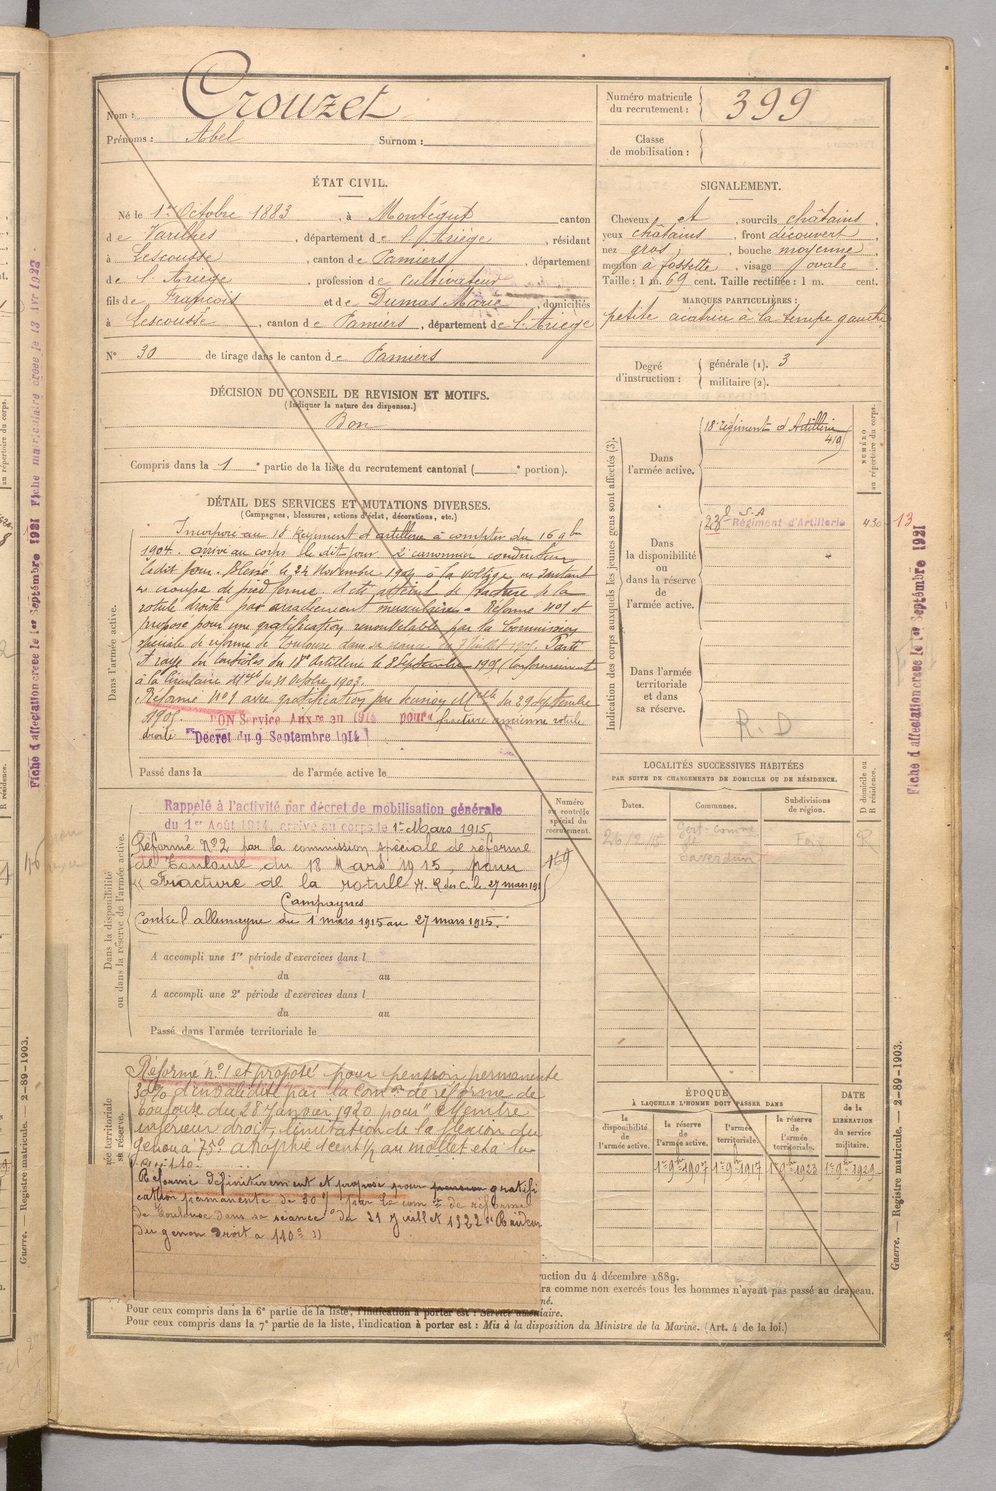 Nom : Crouzet
Prénoms : Abel Surnom :
Numéro matricule du recrutement : 399
Classe de mobilisation :
ÉTAT CIVIL.
Né le 1er Octobre 1883, à Montégut canton
de Varilhes, département de l'Ariège, résidant
à Lescousse, canton de Pamiers, département
de l'Ariège, profession de cultivateur
fils de François et de Dumas Marie, domiciliés
à Lescousse, canton de Pamiers, département de l'Ariège
N° 30 de tirage dans le canton de Pamiers
SIGNALEMENT.
Cheveux et, sourcils châtains,
yeux châtains, front découvert
nez gros, bouche moyenne,
menton à fossette, visage ovale
Taille : 1 m. 69 cent. Taille rectifiée : 1 m. cent.
MARQUES PARTICULIÈRES :
petite cicatrice à la tempe gauche
Degré d'instruction :
générale (1). 3
militaire (2).
DÉCISION DU CONSEIL DE REVISION ET MOTIFS.
(Indiquer la nature des dispenses.)
Bon
Compris dans la 1e partie de la liste du recrutement cantonal ( e portion).
DÉTAIL DES SERVICES ET MUTATIONS DIVERSES.
(Campagnes, blessures, actions d'éclat, décorations, etc.)
Dans l'armée active.
Incorporé au 18 Régiment d'artillerie à compter du 16 9bre
1904. arrivé au corps le dit jour 2e canonnier conducteur
le dit jour. Blessé le 24 Novembre 1904 à la voltige, en sautant
en croupe de pied ferme. a été atteint de fracture de la
rotule droite par arrachement musculaire. Réformé N°1 et
proposé pour une gratification renouvelable par la Commission
spéciale de réforme de Toulouse dans sa séance du juillet 1905. Parti
et rayé des contrôles du 18e Artillerie le septembre 1905 Conformément
à la circulaire du 31 Octobre 1903.
Réformé N°1 avec gratification par décision Mlle du 29 septembre
1905. BON Service Auxre en 1914 pour fracture ancienne rotule
droite Décret du 9 Septembre 1914
Passé dans la de l'armée active le
Dans la disponibilité ou dans la réserve de l'armée active.
Rappelé à l'activité par décret de mobilisation générale
du 1er Août 1914, arrivé au corps le 1er Mars 1915
Réformé N°2 par la commission spéciale de réforme
de Toulouse du 18 Mars 1915, pour
« Fracture de la rotule R. du C. le 27 mars 191
Campagnes
Contre l'allemagne du 1 mars 1915 au 27 mars 1915.
A accompli une 1re période d'exercices dans l
du au
A accompli une 2e période d'exercices dans l
du au
Passé dans l'armée territoriale le
Numéro au contrôle spécial du recrutement.
169
Réformé n°1 et proposé pour pension permanente
30% d'invalidité par la Comon de réforme de
Toulouse du 28 Janvier 1920 pour "Membre
inférieur droit, limitation de la flexion du
genou à 75° atrophie 1 cent 1/2 au mollet et à la
Réformé définitivement et proposé pour pension gratifi
cation permanente de 30% par la comon de réforme
de Toulouse dans sa séance du 21 Juillet 1922 "Raideur
du genou droit à 110° »
Corps auxquels les jeunes gens sont affectés (3).
NUMÉRO au répertoire du corps.
Dans l'armée active.
18e régiment d'Artillerie
Dans la disponibilité ou dans la réserve de l'armée active.
S.A
23e Régiment d'Artillerie 430 13
Dans l'armée territoriale et dans sa réserve.
R.D
LOCALITÉS SUCCESSIVES HABITÉES
PAR SUITE DE CHANGEMENTS DE DOMICILE OU DE RÉSIDENCE.
Dates.
Communes.
Subdivisions de région.
D domicile ou R résidence.
Saverdun Foix R
ÉPOQUE
À LAQUELLE L'HOMME DOIT PASSER DANS
la disponibilité de l'armée active.
la réserve de l'armée active.
l'armée territoriale.
la réserve de l'armée territoriale.
DATE de la LIBÉRATION du service militaire.
1er 9bre 1907 1er 9bre 1917 1er 9bre 1923 1er 9bre 1929
uction du 4 décembre 1889.
ra comme non exercés tous les hommes n'ayant pas passé au drapeau.
Pour ceux compris dans la 6e partie de la liste, l'indication à porter est : Service auxiliaire.
Pour ceux compris dans la 7e partie de la liste, l'indication à porter est : Mis à la disposition du Ministre de la Marine. (Art. 4 de la loi.)
Guerre. — Registre matricule. — 2-89-1903.
Fiche d'affectation créée le 1er Septembre 1921
Fiche d'affectation créée le 1er Septembre 1921 Fiche matriculaire créée le 13 1922
Guerre. — Registre matricule. — 2-89-1903.